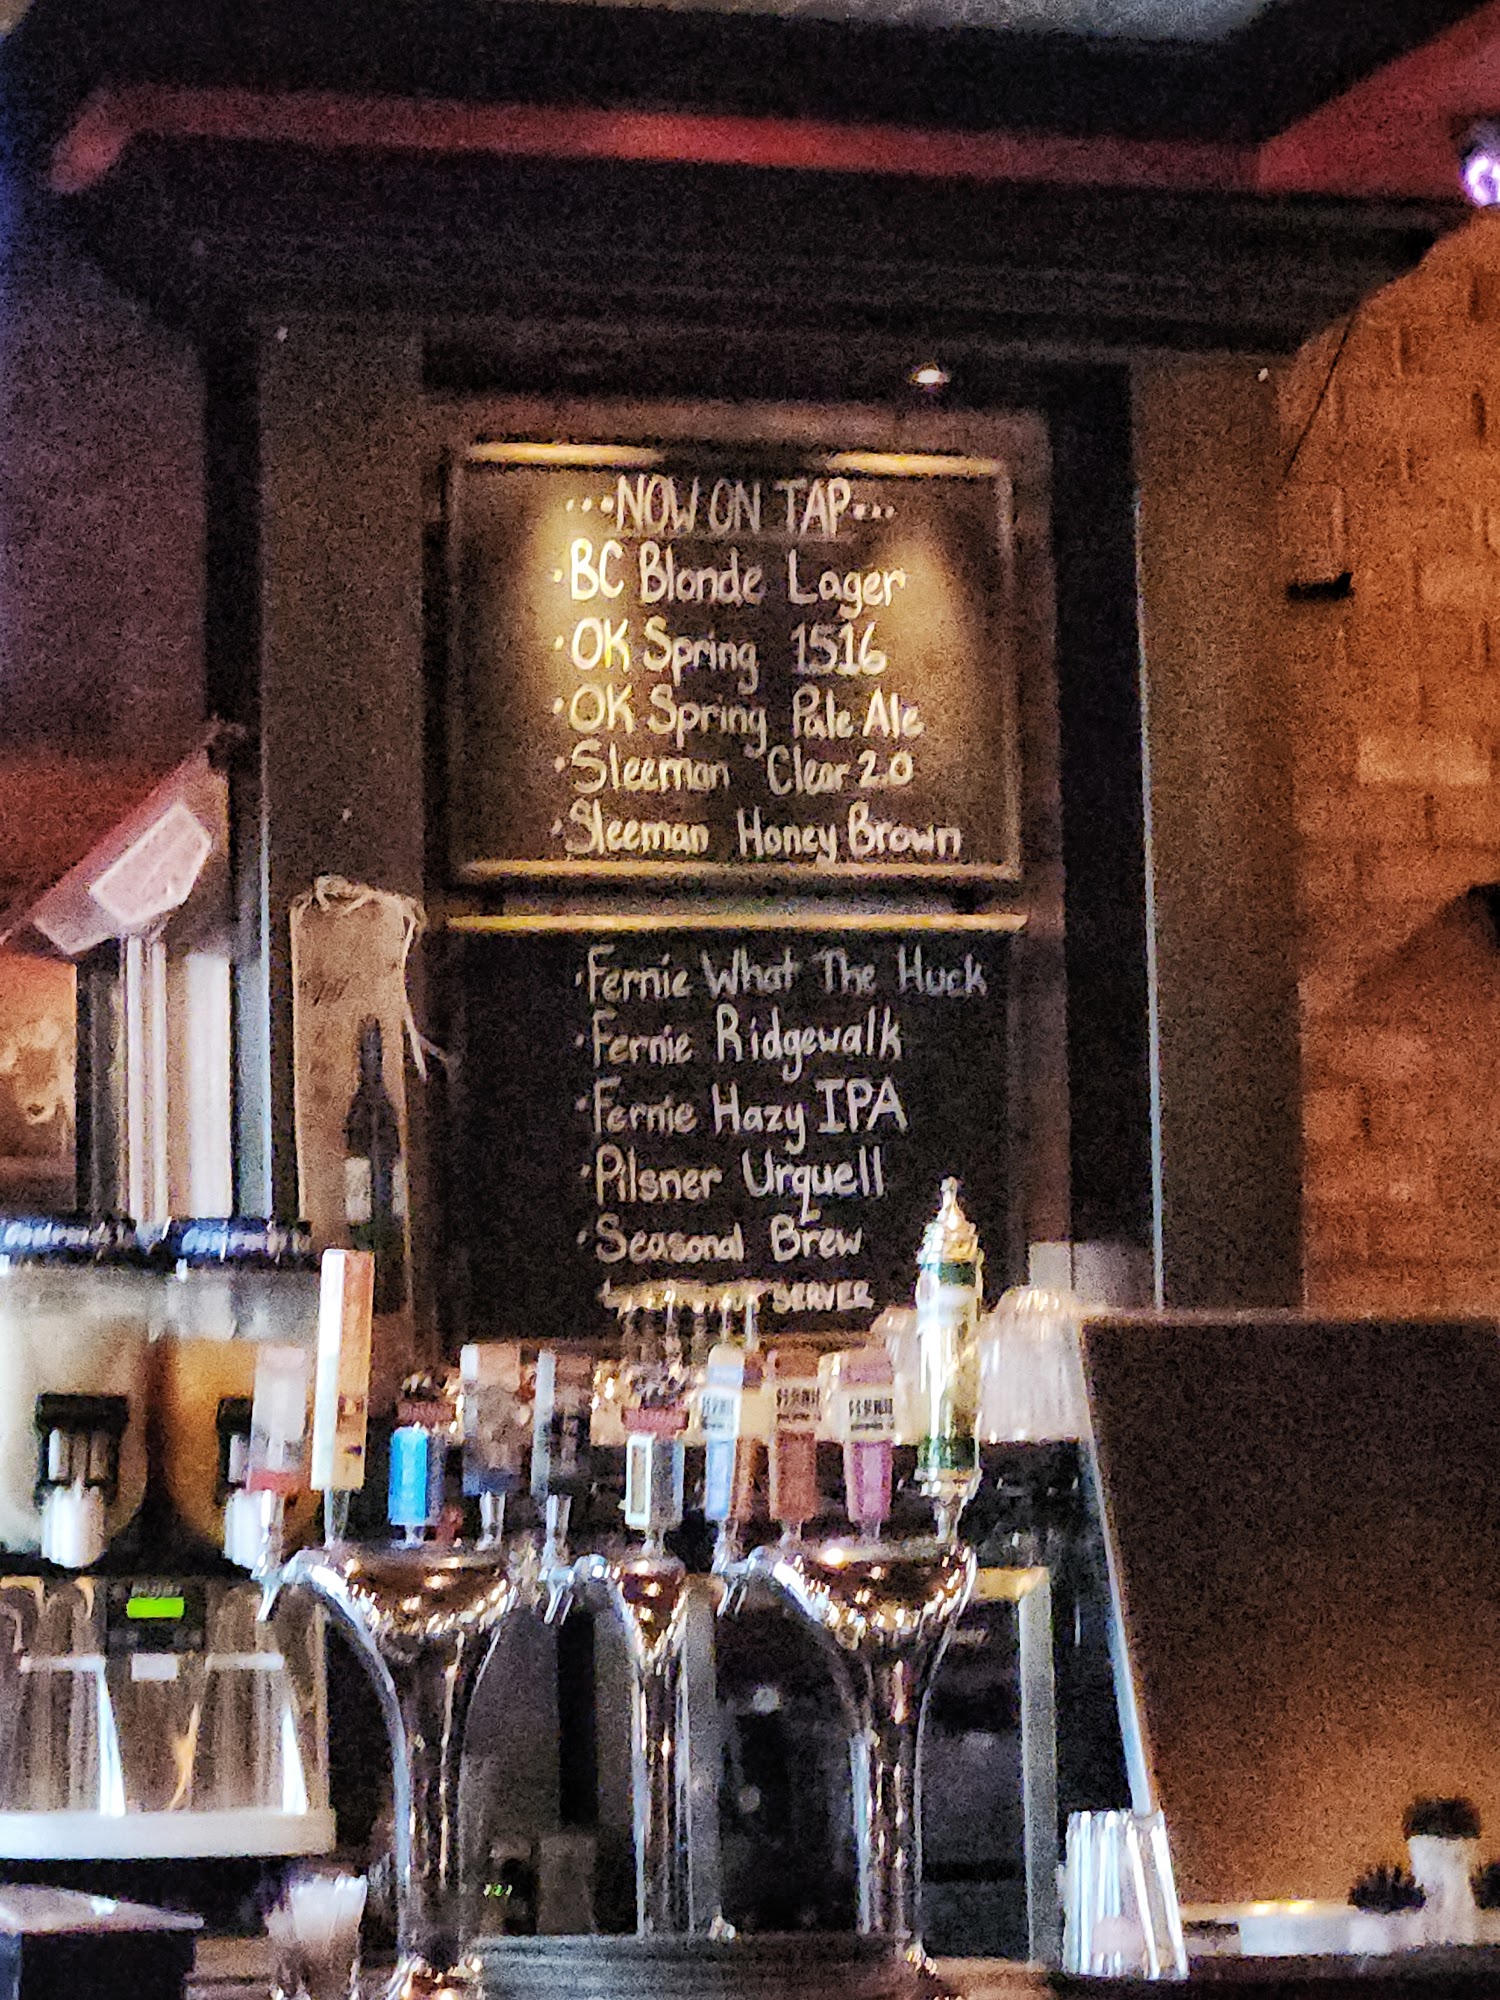 ...NOW ON TAP...
·BC Blonde Lager
·OK Spring 1516
·OK Spring Pale Ale
·Sleeman Clear 2.0
·Sleeman Honey Brown
·Fernie What The Huck
·Fernie Ridgewalk
·Fernie Hazy IPA
·Pilsner Urquell
·Seasonal Brew
SERVER
FERNIE
FERNIE
FERNIE